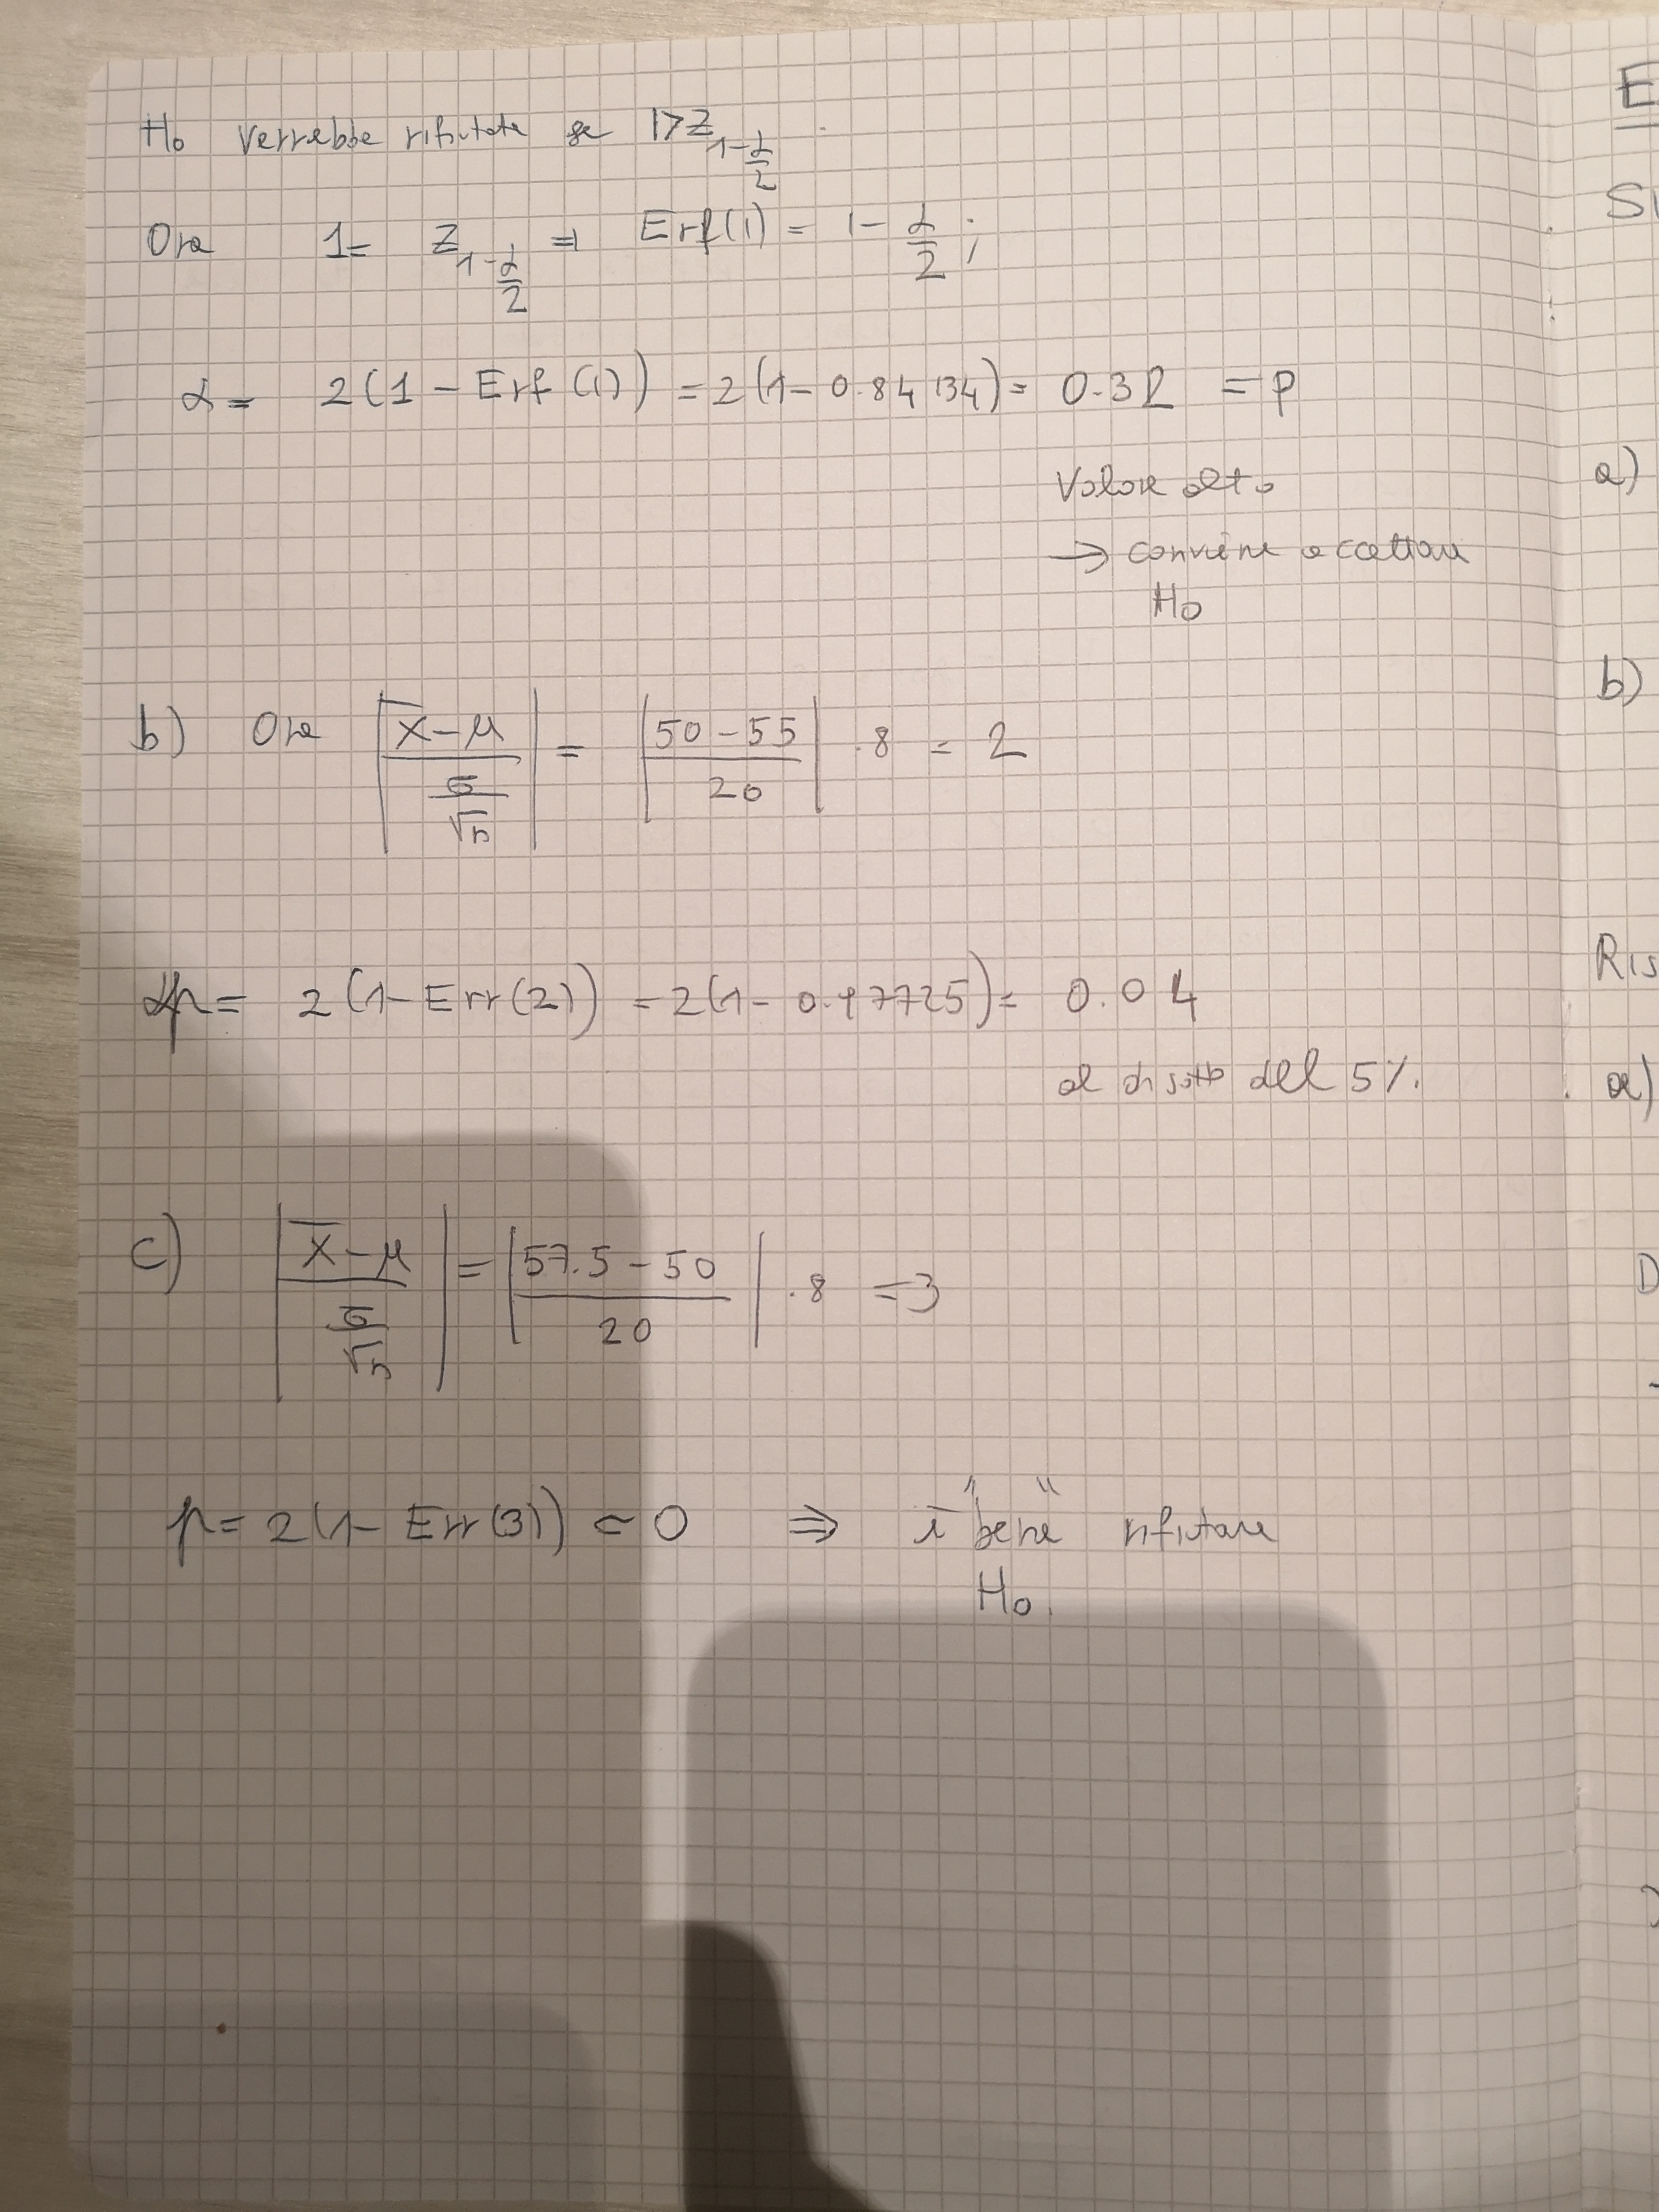 H₀ verrebbe rifiutata se 1>Z_{1-α/2}
Ora 1 = Z_{1-α/2} ⇒ Erf(1) = 1 - α/2 ;
α = 2(1 - Erf(1)) = 2(1 - 0.84134) = 0.32 = p
Valore alto
→ conviene accettare
H₀
b) Ora |(x̄-μ)/(σ/√n)| = |(50-55)/20| · 8 = 2
p = 2(1 - Err(2)) = 2(1 - 0.97725) = 0.04
al di sotto del 5%.
c) |(x̄-μ)/(σ/√n)| = |(57.5-50)/20| · 8 = 3
p = 2(1 - Err(3)) ≃ 0 ⇒ è "bene" rifiutare
H₀.
E
Si
a)
b)
Ris
a)
D